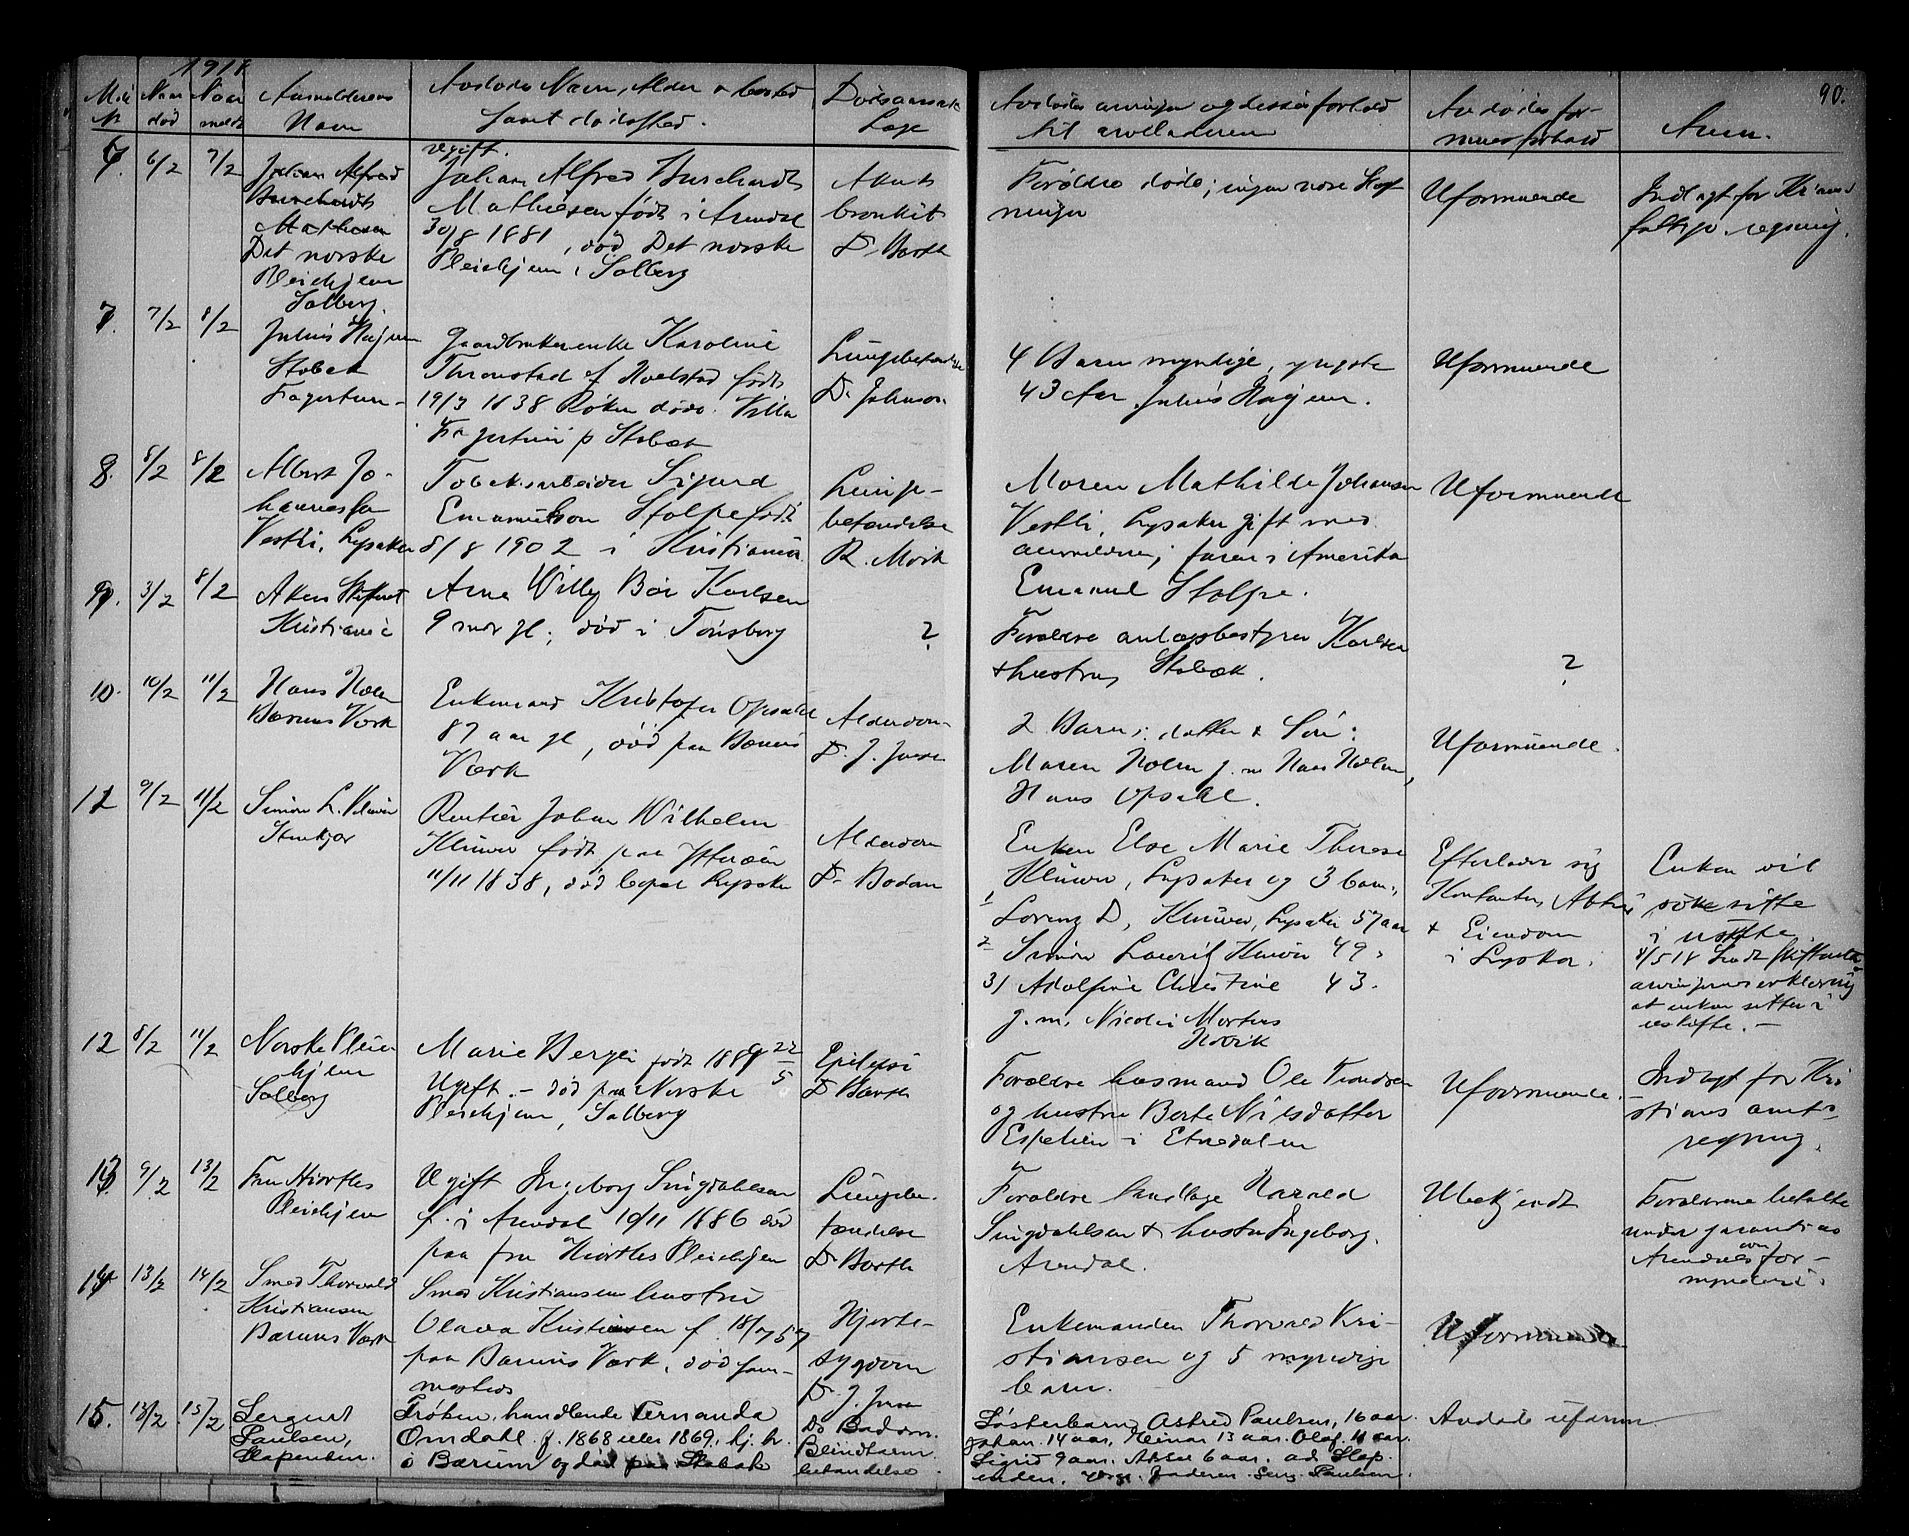 1918
90.
Meld Naar Naar Anmelderens Avdødes Navn, Alder & bosted Dødsaarsak
N død meldt Navn samt dødssted. Læge
Avdødes arvinger og desses forhold Avdødes for- Anm.
til arveladeren muesforhold
6/2 7/2 Johan Alfred
Burchardt
Mathiesen
Det norske
Pleiehjem
Solberg.
Ugift.
Johan Alfred Burchardt
Mathiesen født i Arendal
30/8 1881, død Det norske
Pleiehjem i Solberg
Akut
bronkit
Dr Barth
Forældre døde; ingen
Uformuende
Indlagt for
regning.
7. 7/2 8/2 Julius Hagen
Stabek
Fagertun
Gaardbrukerenke Karoline
Thronstad f
19/3 1838 Røken død. Villa
Fagertun p Stabæk
Lungebetændelse
Dr. Johnson
4 Barn myndige, yngste
43 Aar. Julius Hagen.
Uformuende
8. 8/2 8/2 Albert Jo-
hannessen
Vestli, Lysaker
Tobaksarbeider Sigurd
Emanuelson Stolpe født
8/8 1902 i Kristiania
Lunge-
betændelse
R. Mork
Moren Mathilde Johansen
Vestli, Lysaker gift med
anmelderen; faren i Amerika
Emanuel Stolpe.
Uformuende
9. 3/2 8/2 Akers Skifteret
Kristiania
Arne Willy Karlsen
9 mdr gl; død i Tønsberg
?
Forældre anlægsbestyrer Karlsen
& hustru, Stabæk.
?
10. 10/2 11/2 Hans Holm
Bærums Værk
Enkemand Kristofer Opsahl
87 aar gl, død paa Bærums
Værk
Alderdom
Dr. J.
2 Barn; datter & Søn:
Maren Holm g. m Hans Holm,
Hans Opsahl.
Uformuende.
11 9/2 11/2 Simon L. Klüwer
Stenkjær
Rentier Johan Wilhelm
Klüwer født paa Ytterøen
11/11 1838, død bopæl Lysaker
Alderdom
Dr. Bodom
Enken Else Marie Therese
Klüwer, Lysaker og 3 barn,
1 Lorenz D, Klüwer, Lysaker 57 aar
2 Simon Lauritz Klüwer 49 "
3) Adolfine Christine 43.
g. m. Nicolai Mortens
Høvik
Efterlader sig
Kontanter,
& Eiendom
i Lysaker.
Enken vil
søke sitte
i uskifte.
4/5 18
arvingernes erklæring
at enken sitter i
uskifte. –
12 8/2 11/2 Norske Pleie
hjem
Solberg
Marie Bergli født 1889 22/5
Ugift. – død paa Norske
Pleiehjem, Solberg
Epilepsi
Dr Barth
Forældre husmand Ole Trondsen
og hustru Berte Nilsdatter
Espelien i Etnedalen
Uformuende.
Indlagt for Kri
stians amts
regning.
13. 9/2 13/2 Fru Hiorths
Pleiehjem
Ugift Ingeborg Singdahlsen
f. i Arendal 10/11 1886 død
paa fru Hiorths Pleiehjem
Lungebe-
tændelse
Dr Barth
Forældre landhdl. Harald
Singdahlsen & hustru Ingeborg.
Arendal.
Ubekjendt
Forældrene betalte
under garanti av
Arendals for-
mynderi.
14 13/2 14/2 Smed Thorvald
Kristiansen
Bærums Værk
Smed Kristiansens hustru
Olava Kristiansen f. 18/7 57
paa Bærums Værk, død sam-
mesteds
Hjerte-
sygdom
Dr. J.
Enkemanden Thorvald Kri-
stiansen og 5 myndige
barn.
Uformuende
15. 13/2 15/2 Sergent
Paulsen,
Slependen.
Frøken, handlende Fernanda
Omdahl. f. 1868 eller 1869. hj. h.
i Bærum og død paa Stabæk
Dr Bodom.
Blindtarm
betændelse
Søsterbarn Astrid Paulsen, 16 aar.
Johan. 14 aar, Heinar 13 aar. Olaf. 11 aar.
Sigrid 9 aar. 6 aar. ad. Slep-
enden. Faderen. Serg. Paulsen.